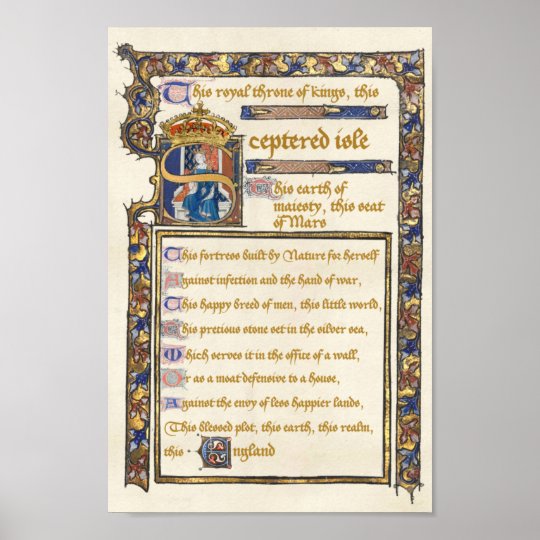 This royal throne of kings, this
Sceptered isle
This earth of
maiesty, this seat
of Mars
This fortress built by Nature for herself
Against infection and the hand of war,
This happy breed of men, this little world,
This precious stone set in the silver sea,
Which serves it in the office of a wall,
Or as a moat defensive to a house,
Against the envy of less happier lands,
This blessed plot, this earth, this realm,
this England